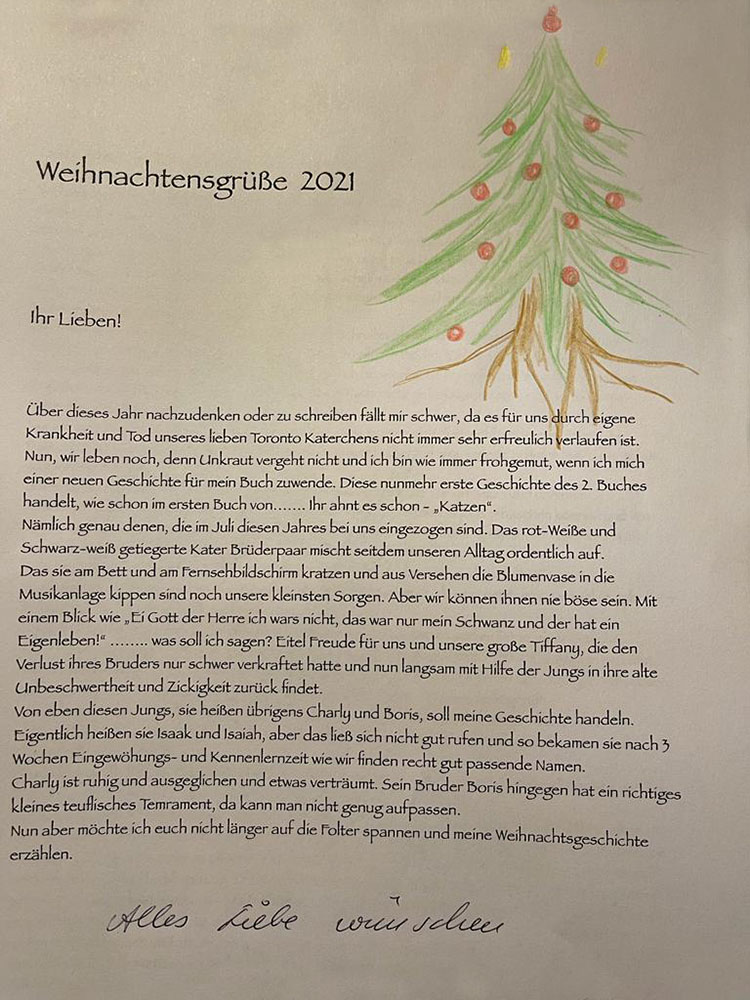 Weihnachtensgrüße 2021
Ihr Lieben!
Über dieses Jahr nachzudenken oder zu schreiben fällt mir schwer, da es für uns durch eigene
Krankheit und Tod unseres lieben Toronto Katerchens nicht immer sehr erfreulich verlaufen ist.
Nun, wir leben noch, denn Unkraut vergeht nicht und ich bin wie immer frohgemut, wenn ich mich
einer neuen Geschichte für mein Buch zuwende. Diese nunmehr erste Geschichte des 2. Buches
handelt, wie schon im ersten Buch von....... Ihr ahnt es schon - „Katzen“.
Nämlich genau denen, die im Juli diesen Jahres bei uns eingezogen sind. Das rot-Weiße und
Schwarz-weiß getiegerte Kater Brüderpaar mischt seitdem unseren Alltag ordentlich auf.
Das sie am Bett und am Fernsehbildschirm kratzen und aus Versehen die Blumenvase in die
Musikanlage kippen sind noch unsere kleinsten Sorgen. Aber wir können ihnen nie böse sein. Mit
einem Blick wie „Ei Gott der Herre ich wars nicht, das war nur mein Schwanz und der hat ein
Eigenleben!“ ........ was soll ich sagen? Eitel Freude für uns und unsere große Tiffany, die den
Verlust ihres Bruders nur schwer verkraftet hatte und nun langsam mit Hilfe der Jungs in ihre alte
Unbeschwertheit und Zickigkeit zurück findet.
Von eben diesen Jungs, sie heißen übrigens Charly und Boris, soll meine Geschichte handeln.
Eigentlich heißen sie Isaak und Isaiah, aber das ließ sich nicht gut rufen und so bekamen sie nach 3
Wochen Eingewöhungs- und Kennenlernzeit wie wir finden recht gut passende Namen.
Charly ist ruhig und ausgeglichen und etwas verträumt. Sein Bruder Boris hingegen hat ein richtiges
kleines teuflisches Temrament, da kann man nicht genug aufpassen.
Nun aber möchte ich euch nicht länger auf die Folter spannen und meine Weihnachtsgeschichte
erzählen.
Alles Liebe wünschen